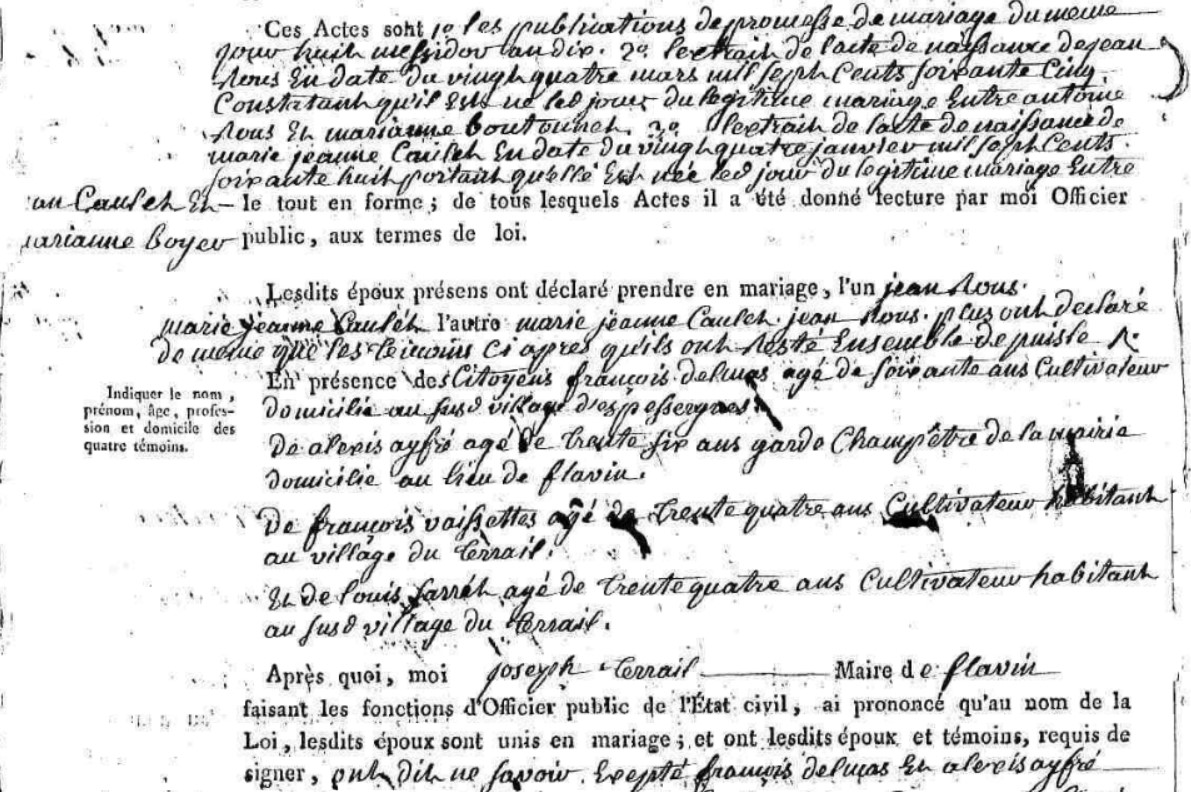 Ces Actes sont 1o les publications de promesse de mariage du meme
jour huit messidor an dix. 2o l'extrait de l'acte de naissance de jean
Nous En date du vingh quatre mars mil seph Cents soixante Cinq,
Constatant qu'il Est né led jour du legitime mariage Entre antoine
Nous Eh marianne boutonneh. 3o l'extrait de l'acte de naissance de
marie jeanne Causeh En date du vingh quatre janvier mil seph Cents
soixante huit portant quelle Est née led jour du legitime mariage Entre
an Causeh Eh – le tout en forme; de tous lesquels Actes il a été donné lecture par moi Officier
marianne boyer public, aux termes de loi.
Lesdits époux présens ont déclaré prendre en mariage, l'un jean Nous.
marie jeanne Causeh l'autre marie jeanne Causeh. jean Nous. plus ont declaré
de meme que les temoins ci apres qu'ils ont resté Ensemble depuis le
Indiquer le nom,
prénom, âge, profes-
sion et domicile des
quatre témoins.
En présence des Citoyens françois delmas agé de soixante ans Cultivateur
domicilie au susd village d'espessergues.
De alexis ayfré agé de trente six ans garde Champêtre de la mairie
domicilie au lieu de flavin.
De françois vaissettes agé de trente quatre ans Cultivateur habitant
au village du terrail.
Eh de louis farreh agé de trente quatre ans Cultivateur habitant
au susd village du terrail.
Après quoi, moi joseph terrail Maire de flavin
faisant les fonctions d'Officier public de l'État civil, ai prononcé qu'au nom de la
Loi, lesdits époux sont unis en mariage; et ont lesdits époux et témoins, requis de
signer, onh dih ne savoir. Exepté françois delmas Eh alexis ayfré